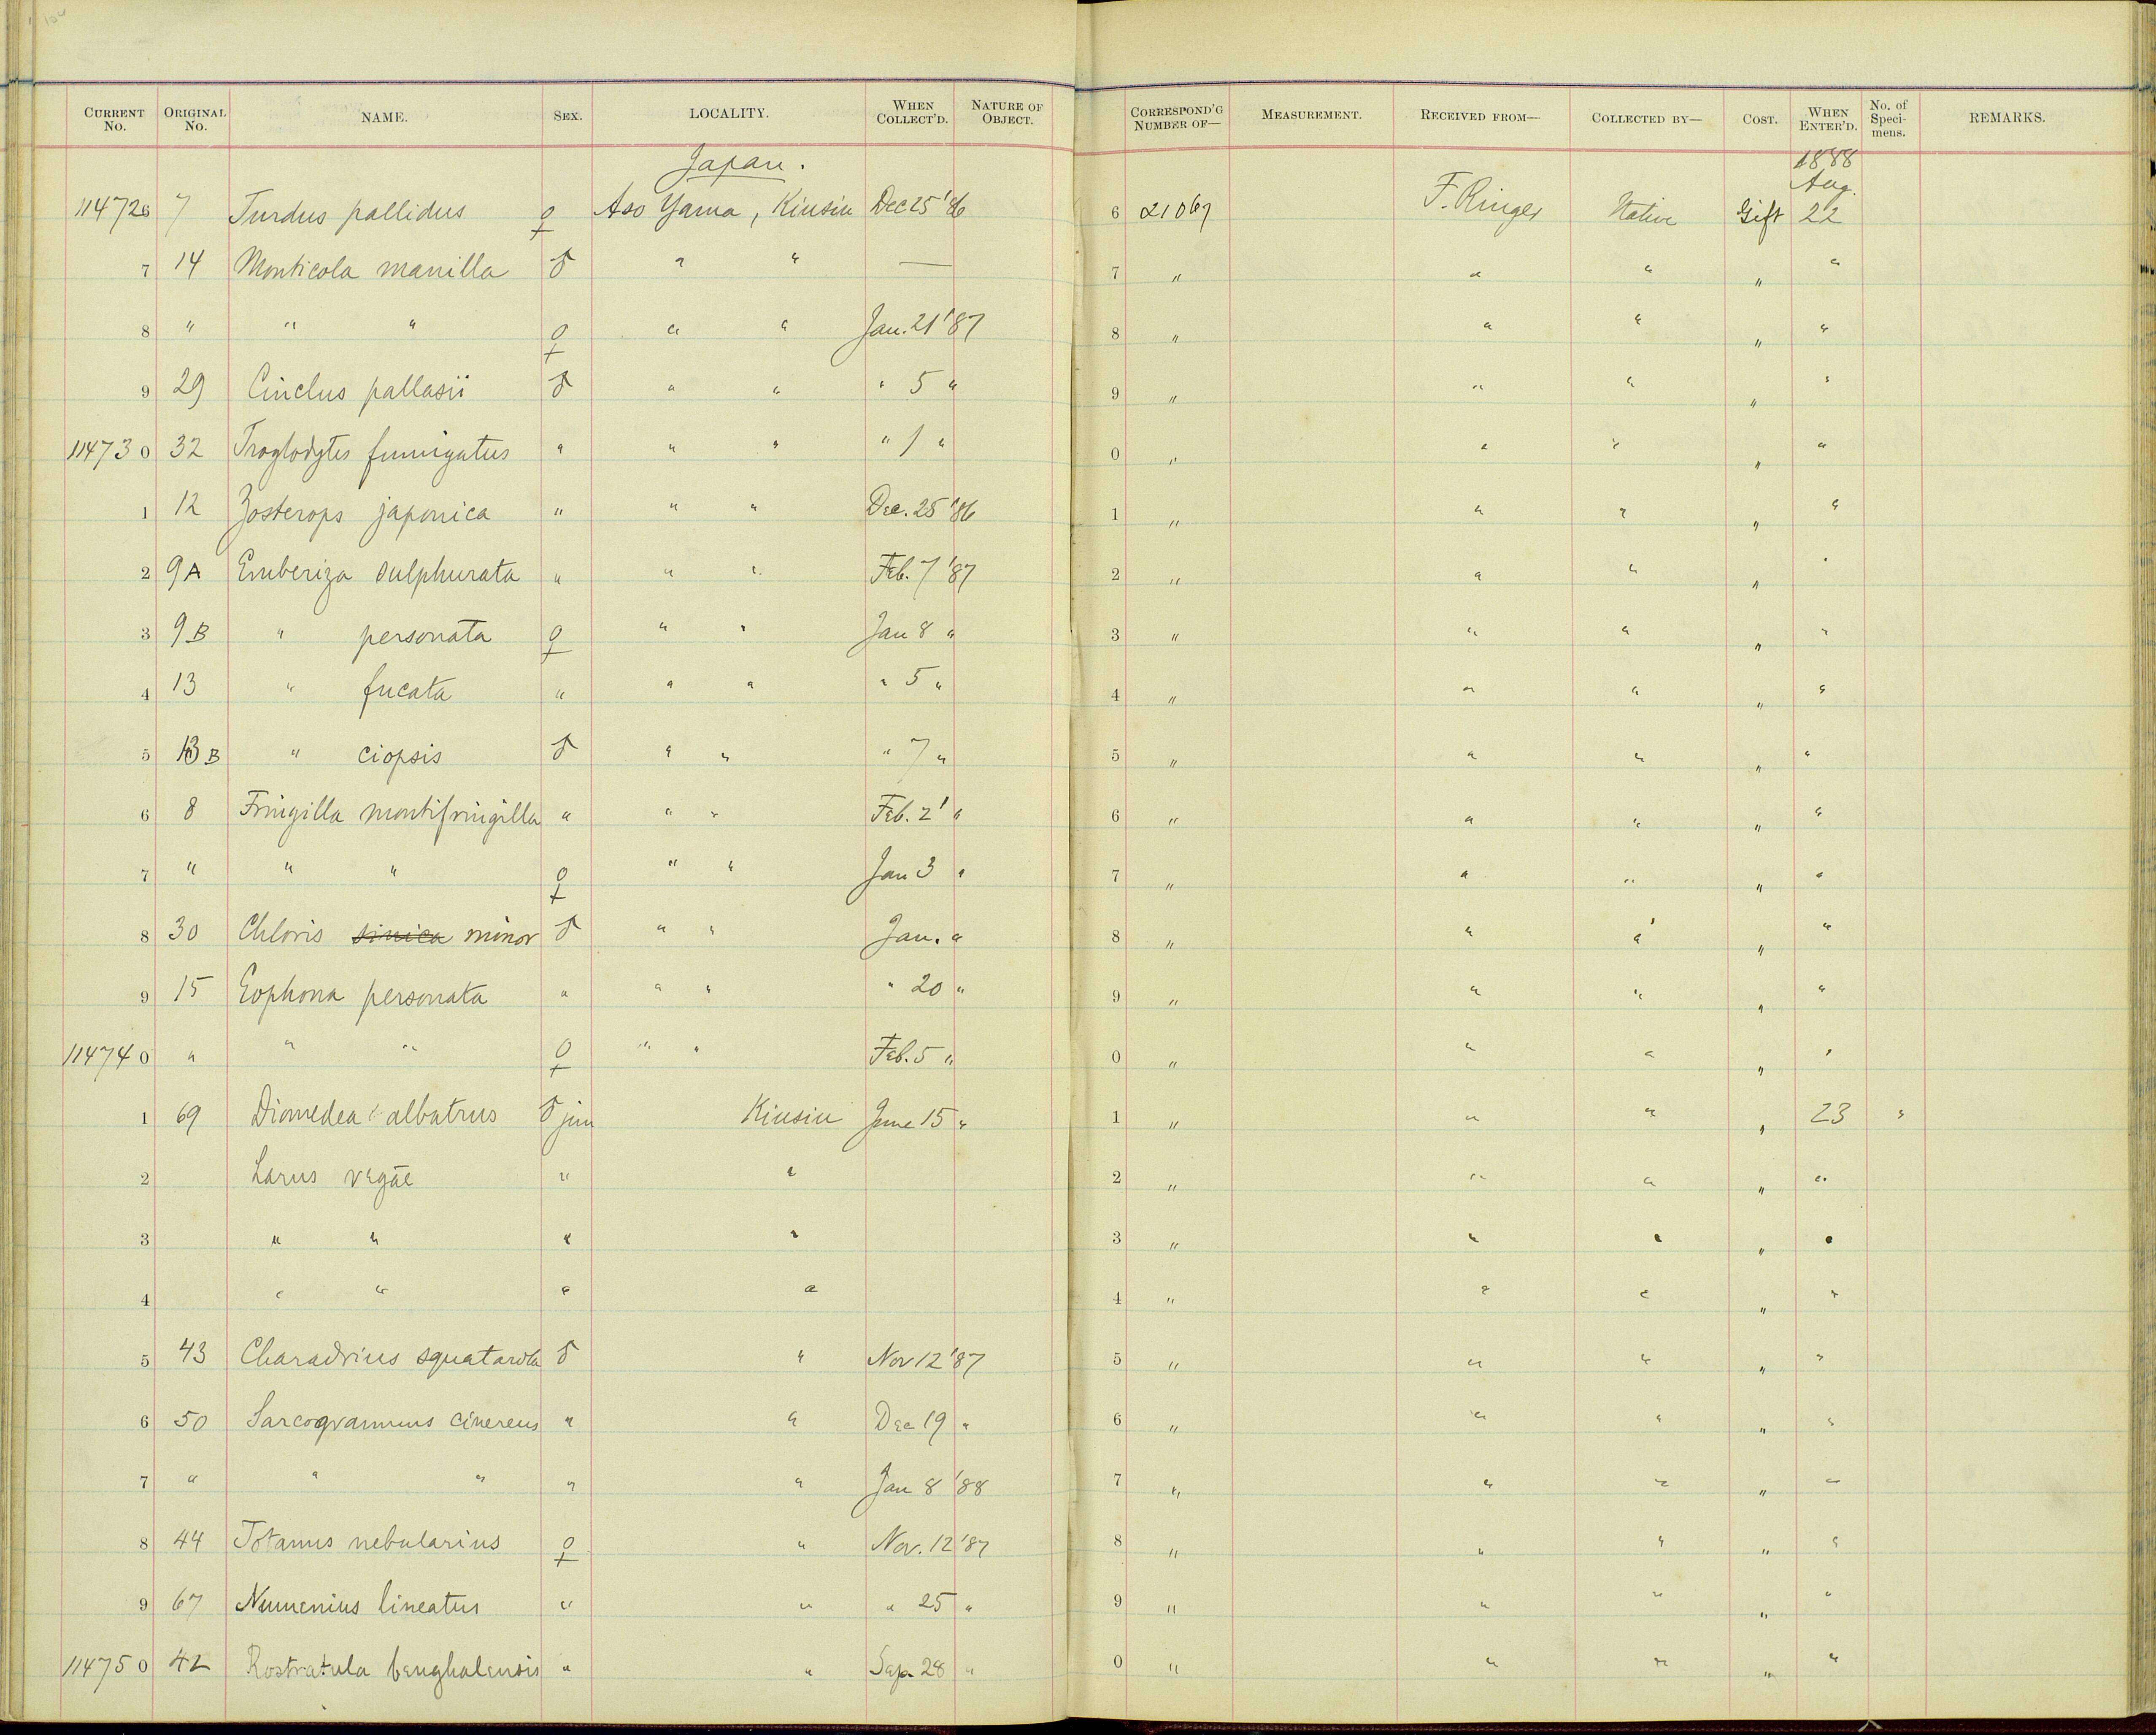 CURRENT No. ORIGINAL No. NAME. SEX. LOCALITY. WHEN COLLECT'D. NATURE OF OBJECT. CORRESPOND'G NUMBER OF— MEASUREMENT. RECEIVED FROM— COLLECTED BY— COST. WHEN ENTER'D. No. of Speci-mens. REMARKS.
Japan. 1888 Aug.
114726 7 Turdus pallidus ♀ Aso Yama, Kiusiu Dec 25 '86 6 21069 F. Ringer Native Gift 22
7 14 Monticola manilla ♂ " " — 7 " " " " "
8 " " " ♀ " " Jan. 21 '87 8 " " " " "
9 29 Cinclus pallasii ♂ " " " 5 " 9 " " " " "
114730 32 Troglodytes fumigatus " " " " 1 " 0 " " " " "
1 12 Zosterops japonica " " " Dec. 25 '86 1 " " " " "
2 9A Emberiza sulphurata " " " Feb. 7 '87 2 " " " " "
3 9B " personata ♀ " " Jan 8 " 3 " " " " "
4 13 " fucata " " " " 5 " 4 " " " " "
5 13B " ciopsis ♂ " " " 7 " 5 " " " " "
6 8 Fringilla montifringilla " " " Feb. 2' " 6 " " " " "
7 " " " ♀ " " Jan 3 " 7 " " " " "
8 30 Chloris sinica minor ♂ " " Jan. " 8 " " " " "
9 15 Eophona personata " " " " 20 " 9 " " " " "
114740 " " " ♀ " " Feb. 5 " 0 " " " " "
1 69 Diomedea albatrus ♂ jun Kiusiu June 15 " 1 " " " " 23 "
2 Larus vegae " " 2 " " " " "
3 " " " " 3 " " " " "
4 " " " " 4 " " " " "
5 43 Charadrius squatarola ♂ " Nov 12 '87 5 " " " " "
6 50 Sarcogrammus cinereus " " Dec 19 " 6 " " " " "
7 " " " " " Jan 8 '88 7 " " " " "
8 44 Totanus nebularius ♀ " Nov. 12 '87 8 " " " " "
9 67 Numenius lineatus " " " 25 " 9 " " " " "
114750 42 Rostratula benghalensis " " Sep 28 " 0 " " " " "